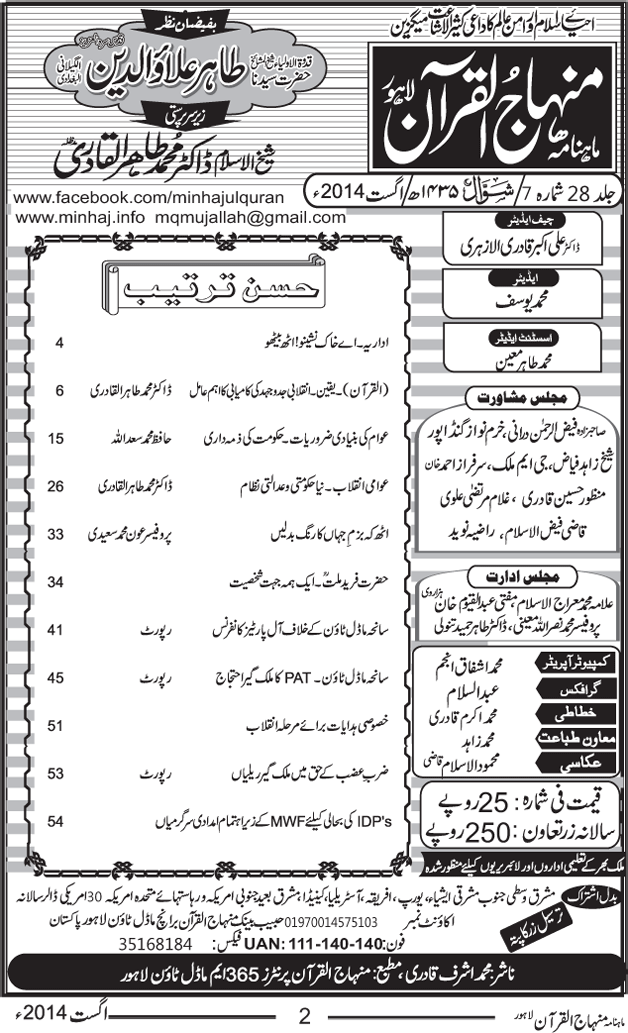 احیائے اسلام اور امن عالم کا داعی کثیر الاشاعت میگزین
ماہنامہ منہاج القرآن لاہور
بفیضانِ نظر
قدوۃ الاولیاء شیخ المشائخ
حضرت سیدنا طاہر علاؤالدین الگیلانی البغدادی
زیر سرپرستی
شیخ الاسلام ڈاکٹر محمد طاہر القادری
www.facebook.com/minhajulquran
www.minhaj.info mqmujallah@gmail.com
جلد 28 شمارہ 7/ شوال ۱۴۳۵ھ/ اگست 2014ء
چیف ایڈیٹر
ڈاکٹر علی اکبر قادری الازہری
ایڈیٹر
محمد یوسف
اسسٹنٹ ایڈیٹر
محمد طاہر معین
مجلس مشاورت
صاحبزادہ فیض الرحمن درانی، خرم نواز گنڈاپور
شیخ زاہد فیاض، جی ایم ملک، سرفراز احمد خان
منظور حسین قادری، غلام مرتضیٰ علوی
قاضی فیض الاسلام، راضیہ نوید
مجلس ادارت
علامہ محمد معراج الاسلام، مفتی عبدالقیوم خان ہزاروی
پروفیسر محمد نصراللہ معینی، ڈاکٹر طاہر حمید تنولی
کمپیوٹر آپریٹر محمد اشفاق انجم
گرافکس عبدالسلام
خطاطی محمد اکرم قادری
معاون طباعت محمد زاہد
عکاسی محمود الاسلام قاضی
قیمت فی شمارہ: 25 روپے
سالانہ زر تعاون: 250 روپے
ملک بھر کے تعلیمی اداروں اور لائبریریوں کیلئے منظور شدہ
حسن ترتیب
اداریہ۔ اے خاک نشینو! اٹھ بیٹھو 4
(القرآن)۔ یقین۔ انقلابی جدوجہد کی کامیابی کا اہم عامل ڈاکٹر محمد طاہر القادری 6
عوام کی بنیادی ضروریات۔ حکومت کی ذمہ داری حافظ محمد سعد اللہ 15
عوامی انقلاب۔ نیا حکومتی و عدالتی نظام ڈاکٹر محمد طاہر القادری 26
اٹھ کہ بزمِ جہاں کا رنگ بدلیں پروفیسر عون محمد سعیدی 33
حضرت فرید ملتؒ۔ ایک ہمہ جہت شخصیت 34
سانحہ ماڈل ٹاؤن کے خلاف آل پارٹیز کانفرنس رپورٹ 41
سانحہ ماڈل ٹاؤن۔ PAT کا ملک گیر احتجاج رپورٹ 45
خصوصی ہدایات برائے مرحلہ انقلاب 51
ضربِ عضب کے حق میں ملک گیر ریلیاں رپورٹ 53
IDP's کی بحالی کیلئے MWF کے زیراہتمام امدادی سرگرمیاں 54
بدل اشتراک مشرق وسطیٰ جنوب مشرقی ایشیاء، یورپ، افریقہ، آسٹریلیا، کینیڈا، مشرق بعید جنوبی امریکہ و ریاستہائے متحدہ امریکہ 30 امریکی ڈالر سالانہ
ترسیل زر کا پتہ اکاؤنٹ نمبر 01970014575103 حبیب بینک منہاج القرآن برانچ ماڈل ٹاؤن لاہور پاکستان
فون: UAN: 111-140-140 فیکس: 35168184
ناشر: محمد اشرف قادری، مطبع: منہاج القرآن پرنٹرز 365 ایم ماڈل ٹاؤن لاہور
ماہنامہ منہاج القرآن لاہور 2 اگست 2014ء